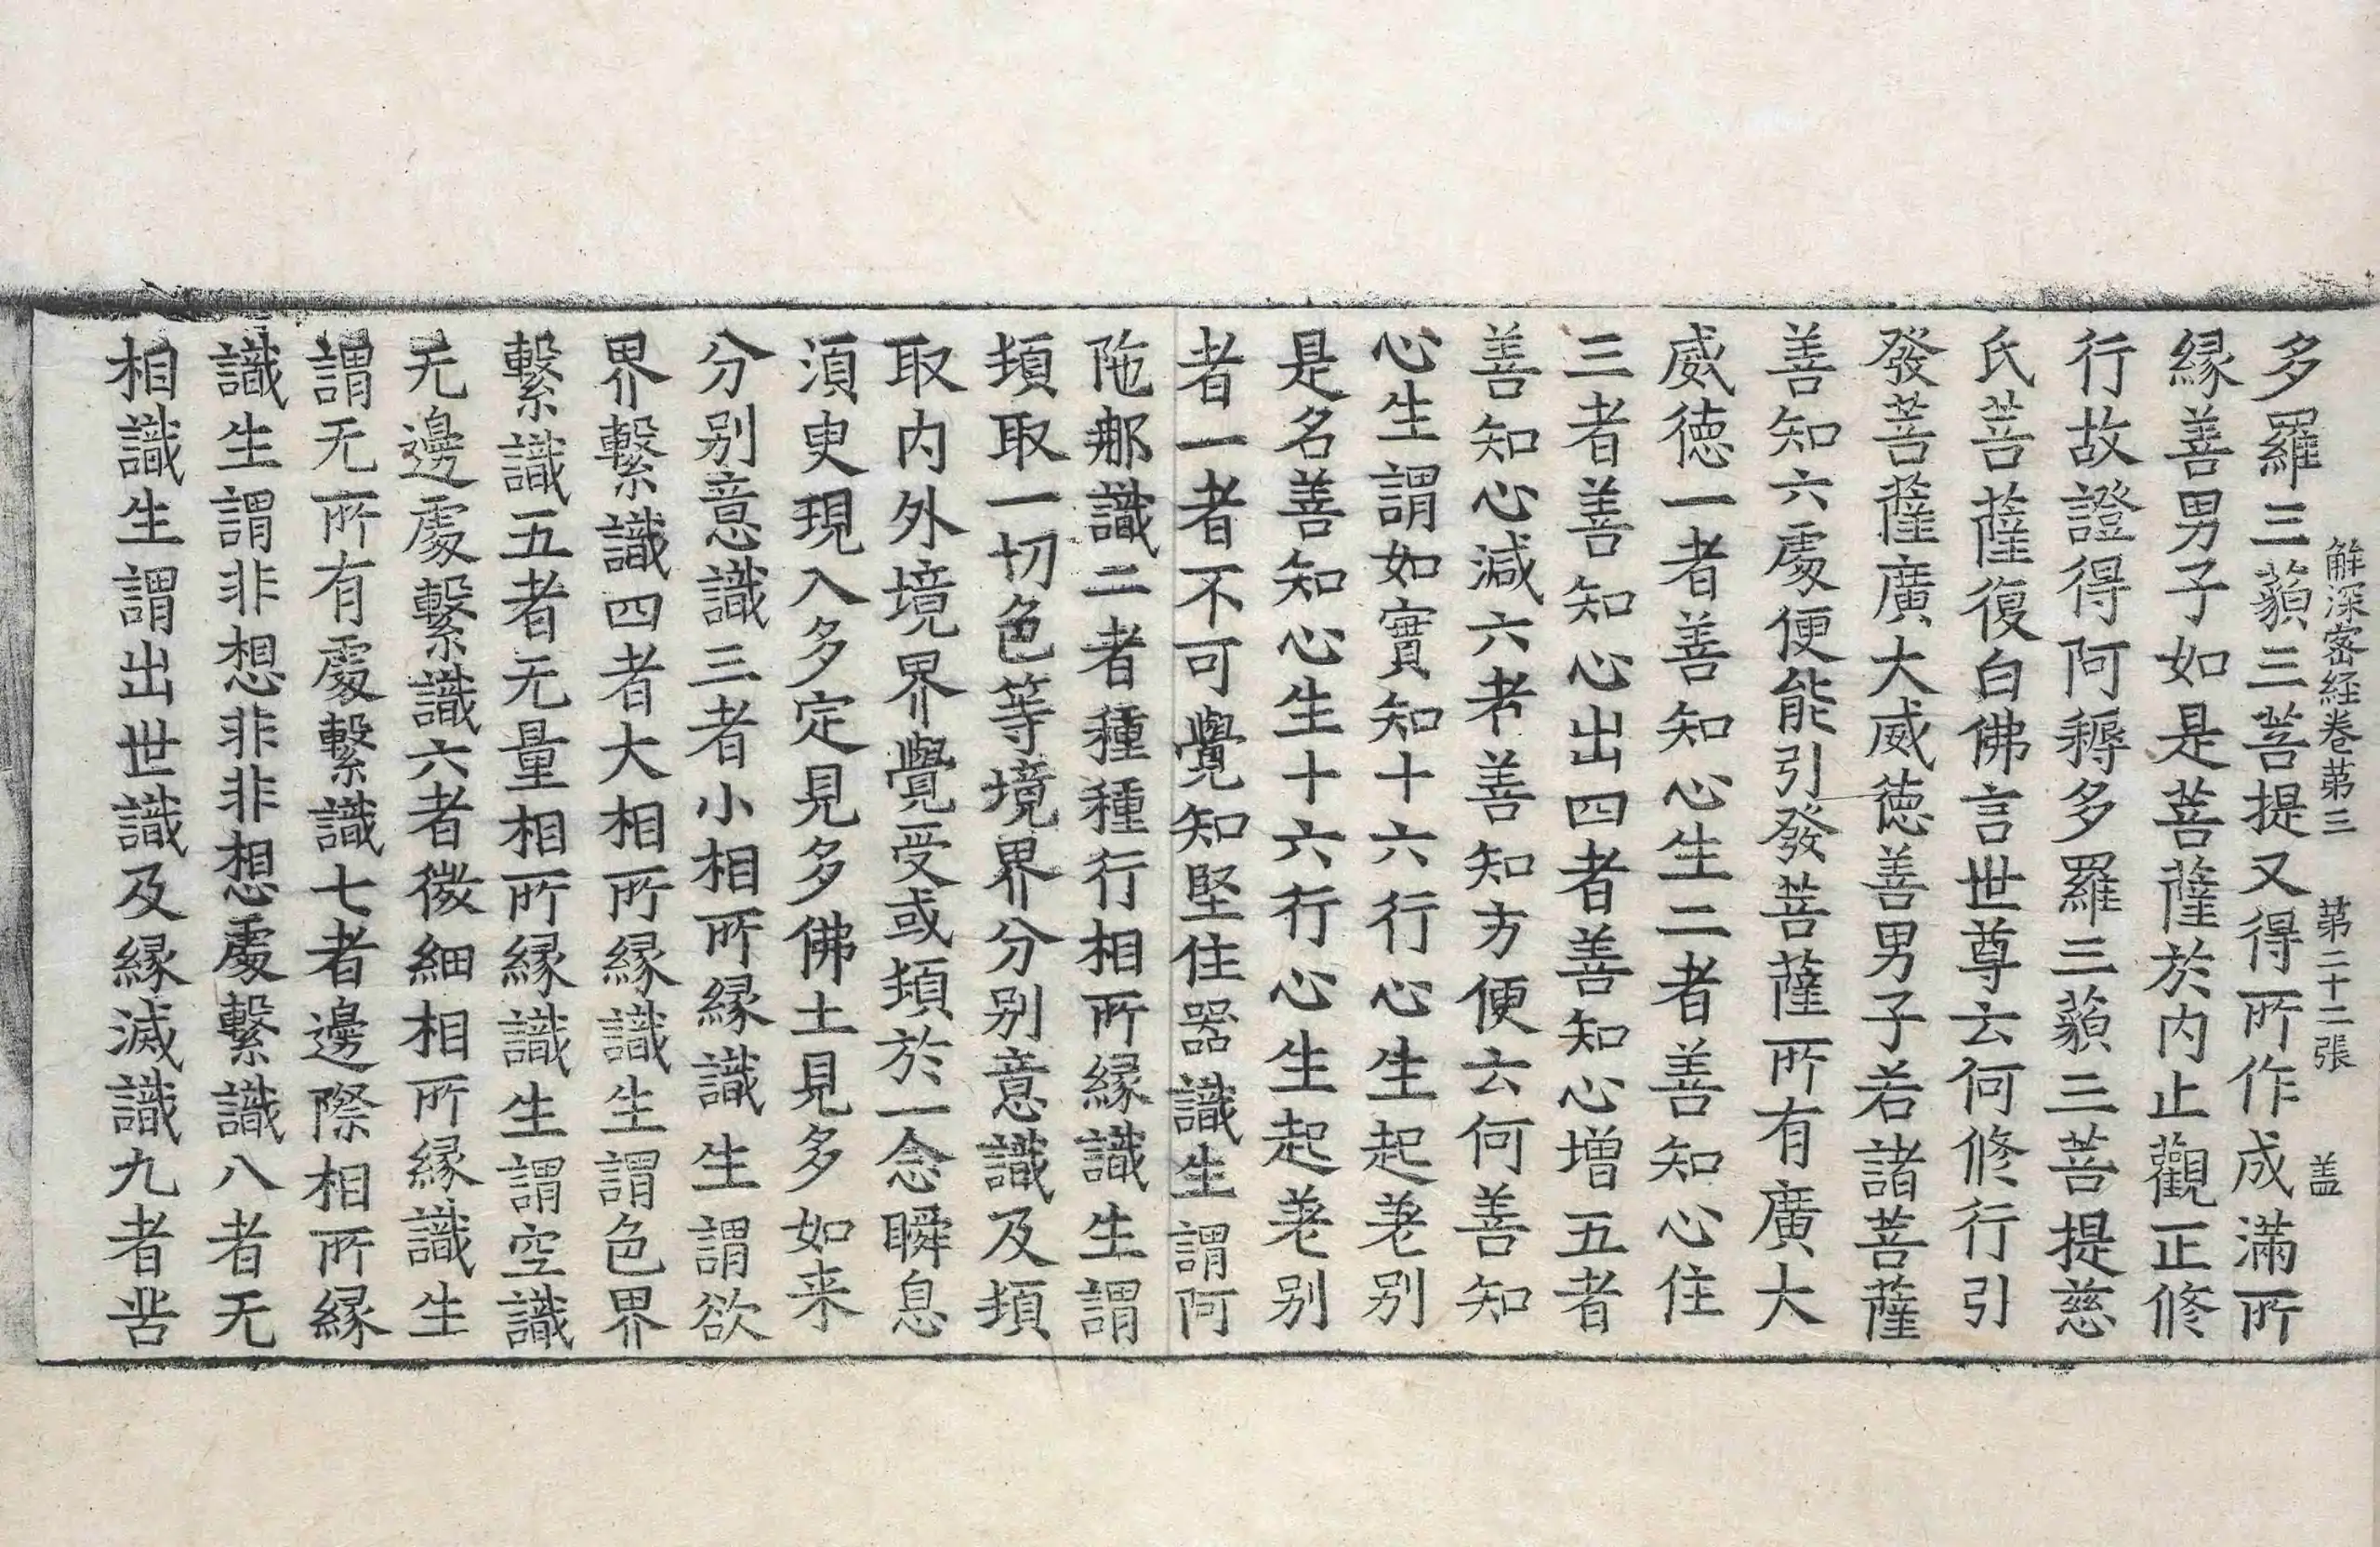 解深密経卷苐三　苐二十二張　盖
多羅三藐三菩提又得所作成滿所
縁善男子如是菩薩於内止觀正修
行故證得阿耨多羅三藐三菩提慈
氏菩薩復白佛言世尊云何修行引
發菩薩廣大威徳善男子若諸菩薩
善知六處便能引發菩薩所有廣大
威徳一者善知心生二者善知心住
三者善知心出四者善知心增五者
善知心減六者善知方便云何善知
心生謂如實知十六行心生起差别
是名善知心生十六行心生起差别
者一者不可覺知堅住器識生謂阿
陁那識二者種種行相所縁識生謂
頓取一切色等境界分别意識及頓
取内外境界覺受或頓於一念瞬息
須臾現入多定見多佛土見多如来
分别意識三者小相所縁識生謂欲
界繫識四者大相所縁識生謂色界
繫識五者无量相所縁識生謂空識
无邊處繫識六者微細相所縁識生
謂无所有處繫識七者邊際相所縁
識生謂非想非非想處繫識八者无
相識生謂出世識及縁滅識九者苦